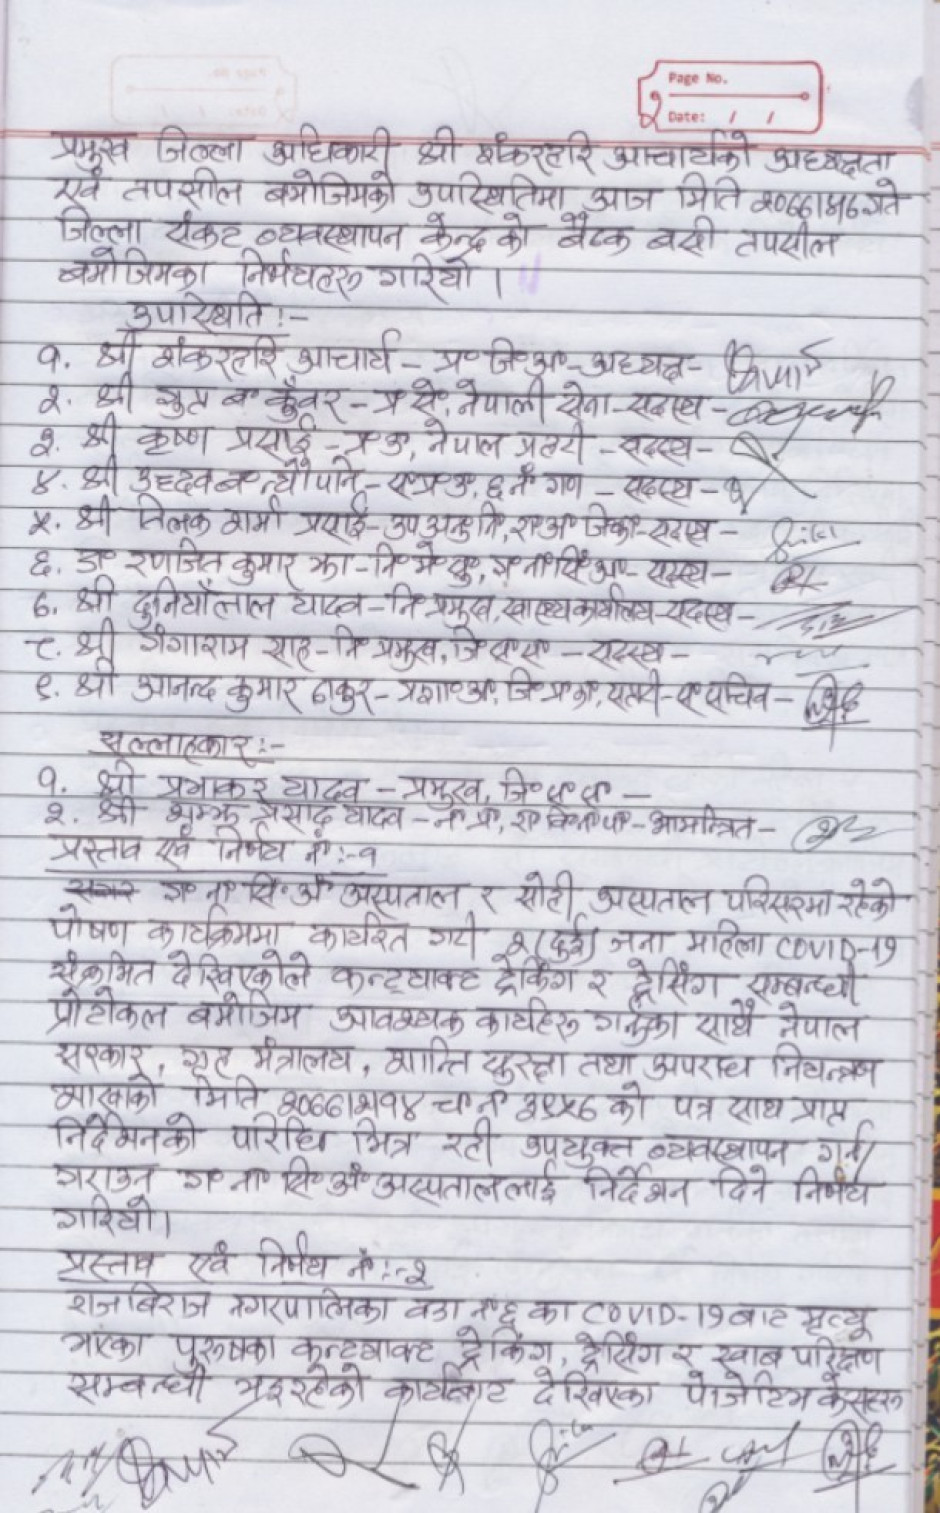 Page No.
Date: / /
प्रमुख जिल्ला अधिकारी श्री शंकरहरि आचार्यको अध्यक्षता
एवं तपसील बमोजिमको उपस्थितिमा आज मिति
जिल्ला संकट व्यवस्थापन केन्द्र को बैठक बसी तपसील
बमोजिमका निर्णयहरु गरियो ।
उपस्थिति :-
१. श्री शंकरहरि आचार्य - प्र॰ जि॰ अ॰ - अध्यक्ष -
२. श्री कुँवर - प्र॰ से॰, नेपाली सेना - सदस्य -
३. श्री कृष्ण प्रसाई - प्र॰ उ॰, नेपाल प्रहरी - सदस्य -
४. श्री उद्दव ब॰ - स॰ प्र॰ उ॰, ६ नं गण - सदस्य -
५. श्री तिलक शर्मा प्रसाई - उप अनु॰ नि॰, - सदस्य -
६. डा॰ रणजित कुमार झा - नि॰ मे॰ सु॰, ग॰ ना॰ सिं॰ अ॰ - सदस्य -
७. श्री दुनियाँलाल यादव - नि॰ प्रमुख, स्वास्थ्य कार्यालय - सदस्य -
८. श्री गंगाराम साह - नि॰ प्रमुख, जि॰ स॰ स॰ - सदस्य -
९. श्री आनन्द कुमार ठाकुर - प्रशा॰ अ॰, जि॰ प्र॰ का॰, सप्तरी - स॰ सचिव -
सल्लाहकार :-
१. श्री प्रभाकर यादव - प्रमुख, जि॰ स॰ स॰ -
२. श्री प्रसाद यादव - न॰ प्र॰, - आमन्त्रित -
प्रस्ताव एवं निर्णय नं :- १
ग॰ ना॰ सिं॰ अं॰ अस्पताल र सोही अस्पताल परिसरमा रहेको
पोषण कार्यक्रममा कार्यरत गरी २ (दुई) जना महिला COVID-19
संक्रमित देखिएकोले कन्ट्याक्ट ट्रेकिंग र ट्रेसिंग सम्बन्धी
प्रोटोकल बमोजिम आवश्यक कार्यहरु गर्नुका साथै नेपाल
सरकार, गृह मंत्रालय, शान्ति सुरक्षा तथा अपराध नियन्त्रण
शाखाको मिति च॰ नं॰ को पत्र साथ प्राप्त
निर्देशनको परिधि भित्र रही उपयुक्त व्यवस्थापन गर्न/
गराउन ग॰ ना॰ सिं॰ अं॰ अस्पताललाई निर्देशन दिने निर्णय
गरियो।
प्रस्ताव एवं निर्णय नं :- २
राजबिराज नगरपालिका वडा नं ६ का COVID-19 बाट मृत्यू
भएका पुरुषका कन्ट्याक्ट ट्रेकिंग, ट्रेसिंग र स्वाब परिक्षण
सम्बन्धी भइरहेको कार्यबाट देखिएका पोजेटिभ केसहरु